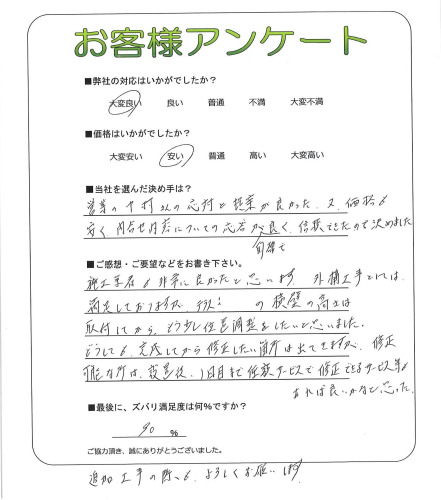 お客様アンケート
■弊社の対応はいかがでしたか?
大変良い 良い 普通 不満 大変不満
■価格はいかがでしたか?
大変安い 安い 普通 高い 大変高い
■当社を選んだ決め手は?
営業の中村さんの応対と提案が良かった。又、価格も
安く、問合せ内容についての応答が良く、信頼できたので決めました
旬確で
■ご感想・ご要望などをお書き下さい。
施工業者も非常に良かったと思います。外構工事としては、
満足しておりますが、 の横壁の高さは
取付してから、どう少し位置調整をしたいと思いました。
どうしても、完成してから修正したい箇所は出てきますが、修正
可能な所は、設置後、1日目まで無償サービスで修正できるサービス等も
あれば良いかなと思った。
■最後に、ズバリ満足度は何%ですか?
90 %
ご協力頂き、誠にありがとうございました。
追加工事の際も、よろしくお願いします